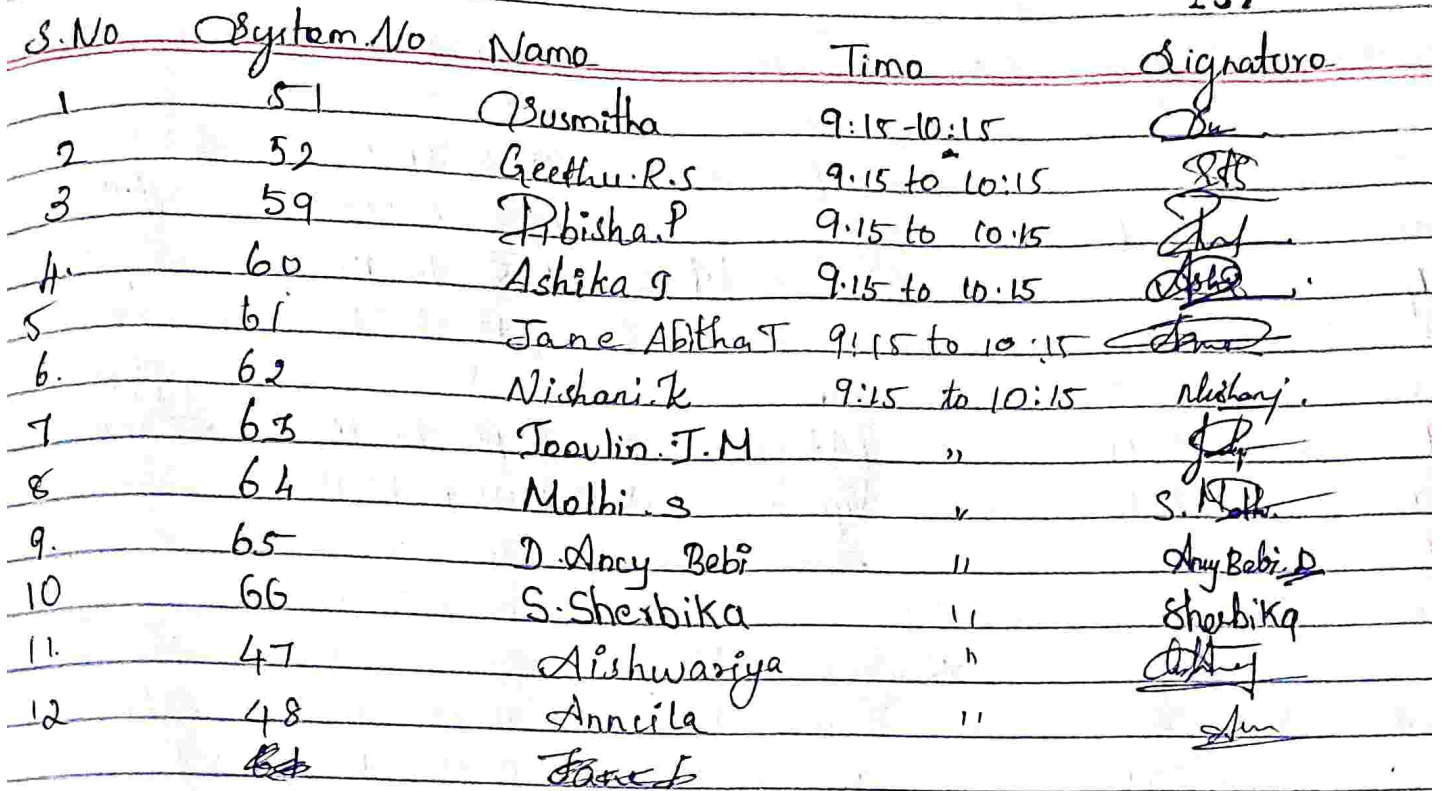 S.No System.No Name Time Signature
1 51 Susmitha 9:15-10:15 Su
2 52 Geethu.R.S 9.15 to 10:15
3 59 Abisha.P 9.15 to 10.15
4. 60 Ashika g 9.15 to 10.15
5 61 Jane Abitha T 9:15 to 10:15
6. 62 Nishani.K 9:15 to 10:15 Nishani.
7 63 Jeevlin.J.M ,,
8 64 Molbi.S ,, S.
9. 65 D.Ancy Bebi ,, Ancy Bebi.D
10 66 S.Sherbika ,, Sherbika
11. 47 Aishwariya ,,
12 48 Anncila ,,